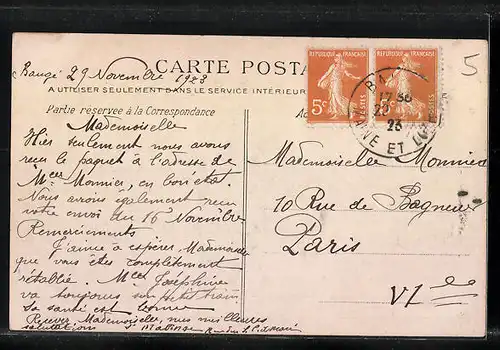 Baugé 29 Novembre 1923
CARTE POSTA
A UTILISER SEULEMENT DANS LE SERVICE INTÉRIEUR
Partie réservée à la Correspondance
Mademoiselle
Hier seulement nous avons
reçu le paquet à l'adresse de
Monnier, en bon état.
Nous avons également reçu
votre envoi du 16 Novembre
Remerciements
J'aime à espérer, Mademoiselle
que vous êtes complètement
rétablie. Joséphine
va toujours son petit train
Sa santé est bonne
Recevez, Mademoiselle, mes meilleures
salutations
REPUBLIQUE FRANÇAISE
5c
POSTES
REPUBLIQUE FRANÇAISE
POSTES
BA
23
NE ET L
5
Mademoiselle Monnier
10 Rue de Bagneux
Paris
VIe